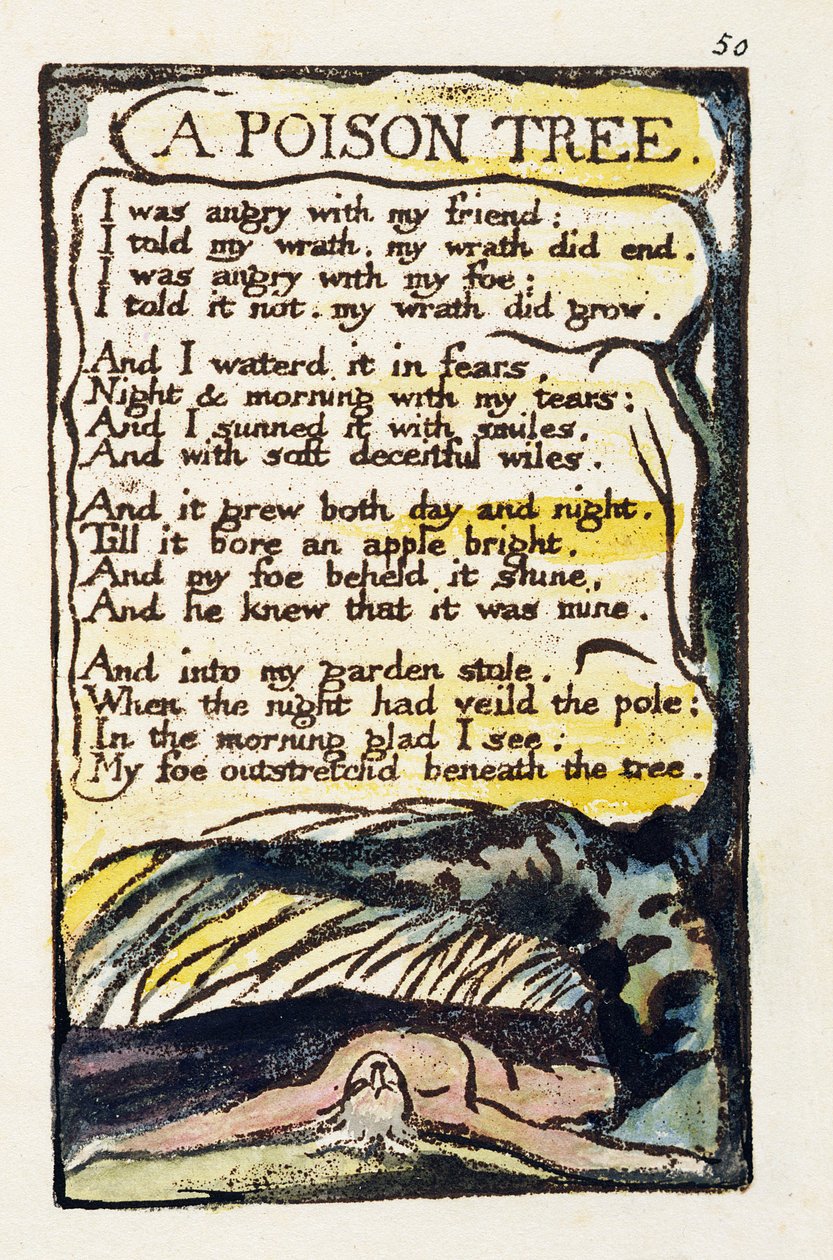 50
A POISON TREE.
I was angry with my friend:
I told my wrath, my wrath did end.
I was angry with my foe:
I told it not. my wrath did grow.
And I waterd it in fears,
Night & morning with my tears:
And I sunned it with smiles,
And with soft deceitful wiles.
And it grew both day and night.
Till it bore an apple bright.
And my foe beheld it shine,
And he knew that it was mine.
And into my garden stole.
When the night had veild the pole;
In the morning glad I see;
My foe outstretchd beneath the tree.